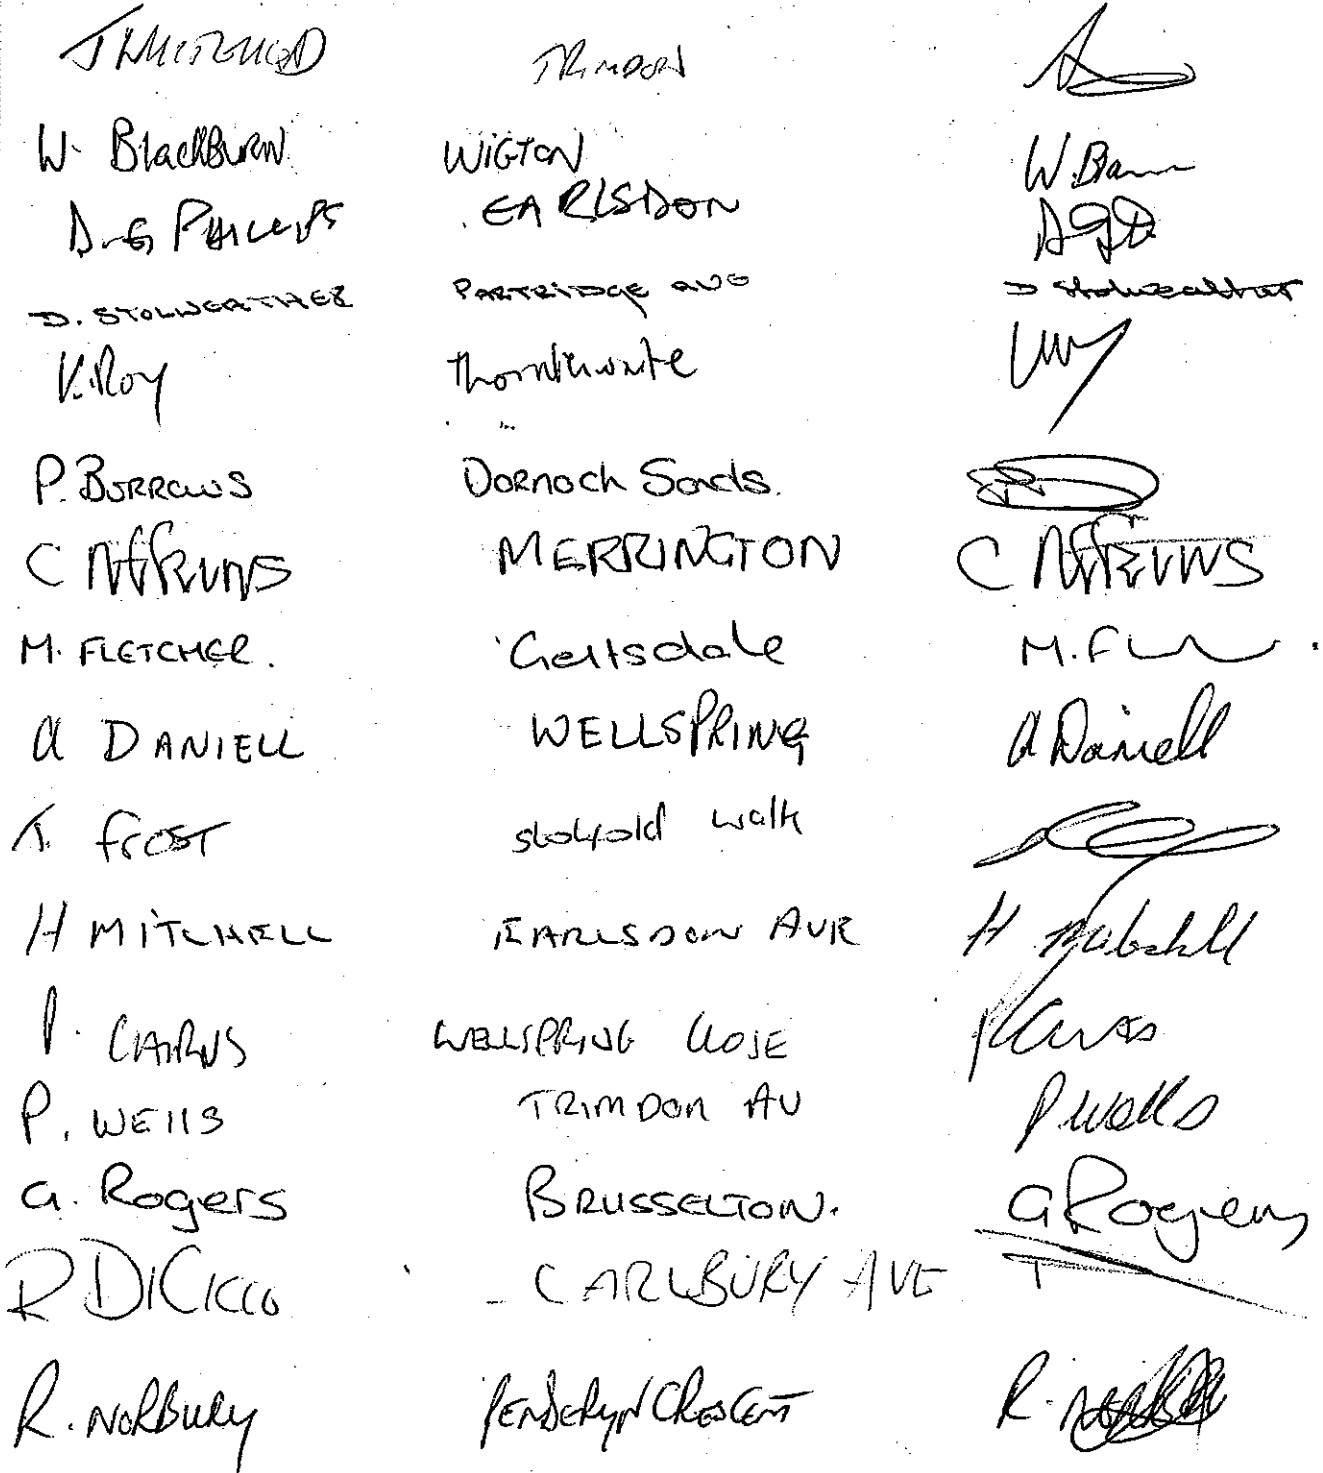 TRIMDON
W. BlackBURN WIGTON W.
D.G PHILLIPS EARLSDON
D. STOLWEATHER PARTRIDGE AVE D Stolweather
K. Roy Thornthwaite
P. BURROWS DORNOCH Sands.
C MERRINGTON C
M. FLETCHER. Geltsdale M. F
A DANIELL WELLSPRING A Daniell
T. frost stotfold walk
H MITCHELL EARLSDON AVE H
P. CAIRNS WELLSPRING CLOSE
P. WEllS TRIMDON AV P Wells
G. Rogers BRUSSELTON. G Rogers
R DiCicco CARLBURY AVE
R. NORBURY PENDERYN CRESCENT R.